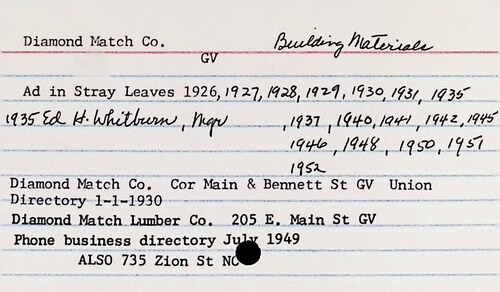 Diamond Match Co. Building Materials
GV
Ad in Stray Leaves 1926, 1927, 1928, 1929, 1930, 1931, 1935
1935 Ed H. Whitburn, Mgr , 1937 , 1940, 1941 , 1942, 1945
1946 , 1948 , 1950 , 1951
1952
Diamond Match Co. Cor Main & Bennett St GV Union
Directory 1-1-1930
Diamond Match Lumber Co. 205 E. Main St GV
Phone business directory July 1949
ALSO 735 Zion St NC